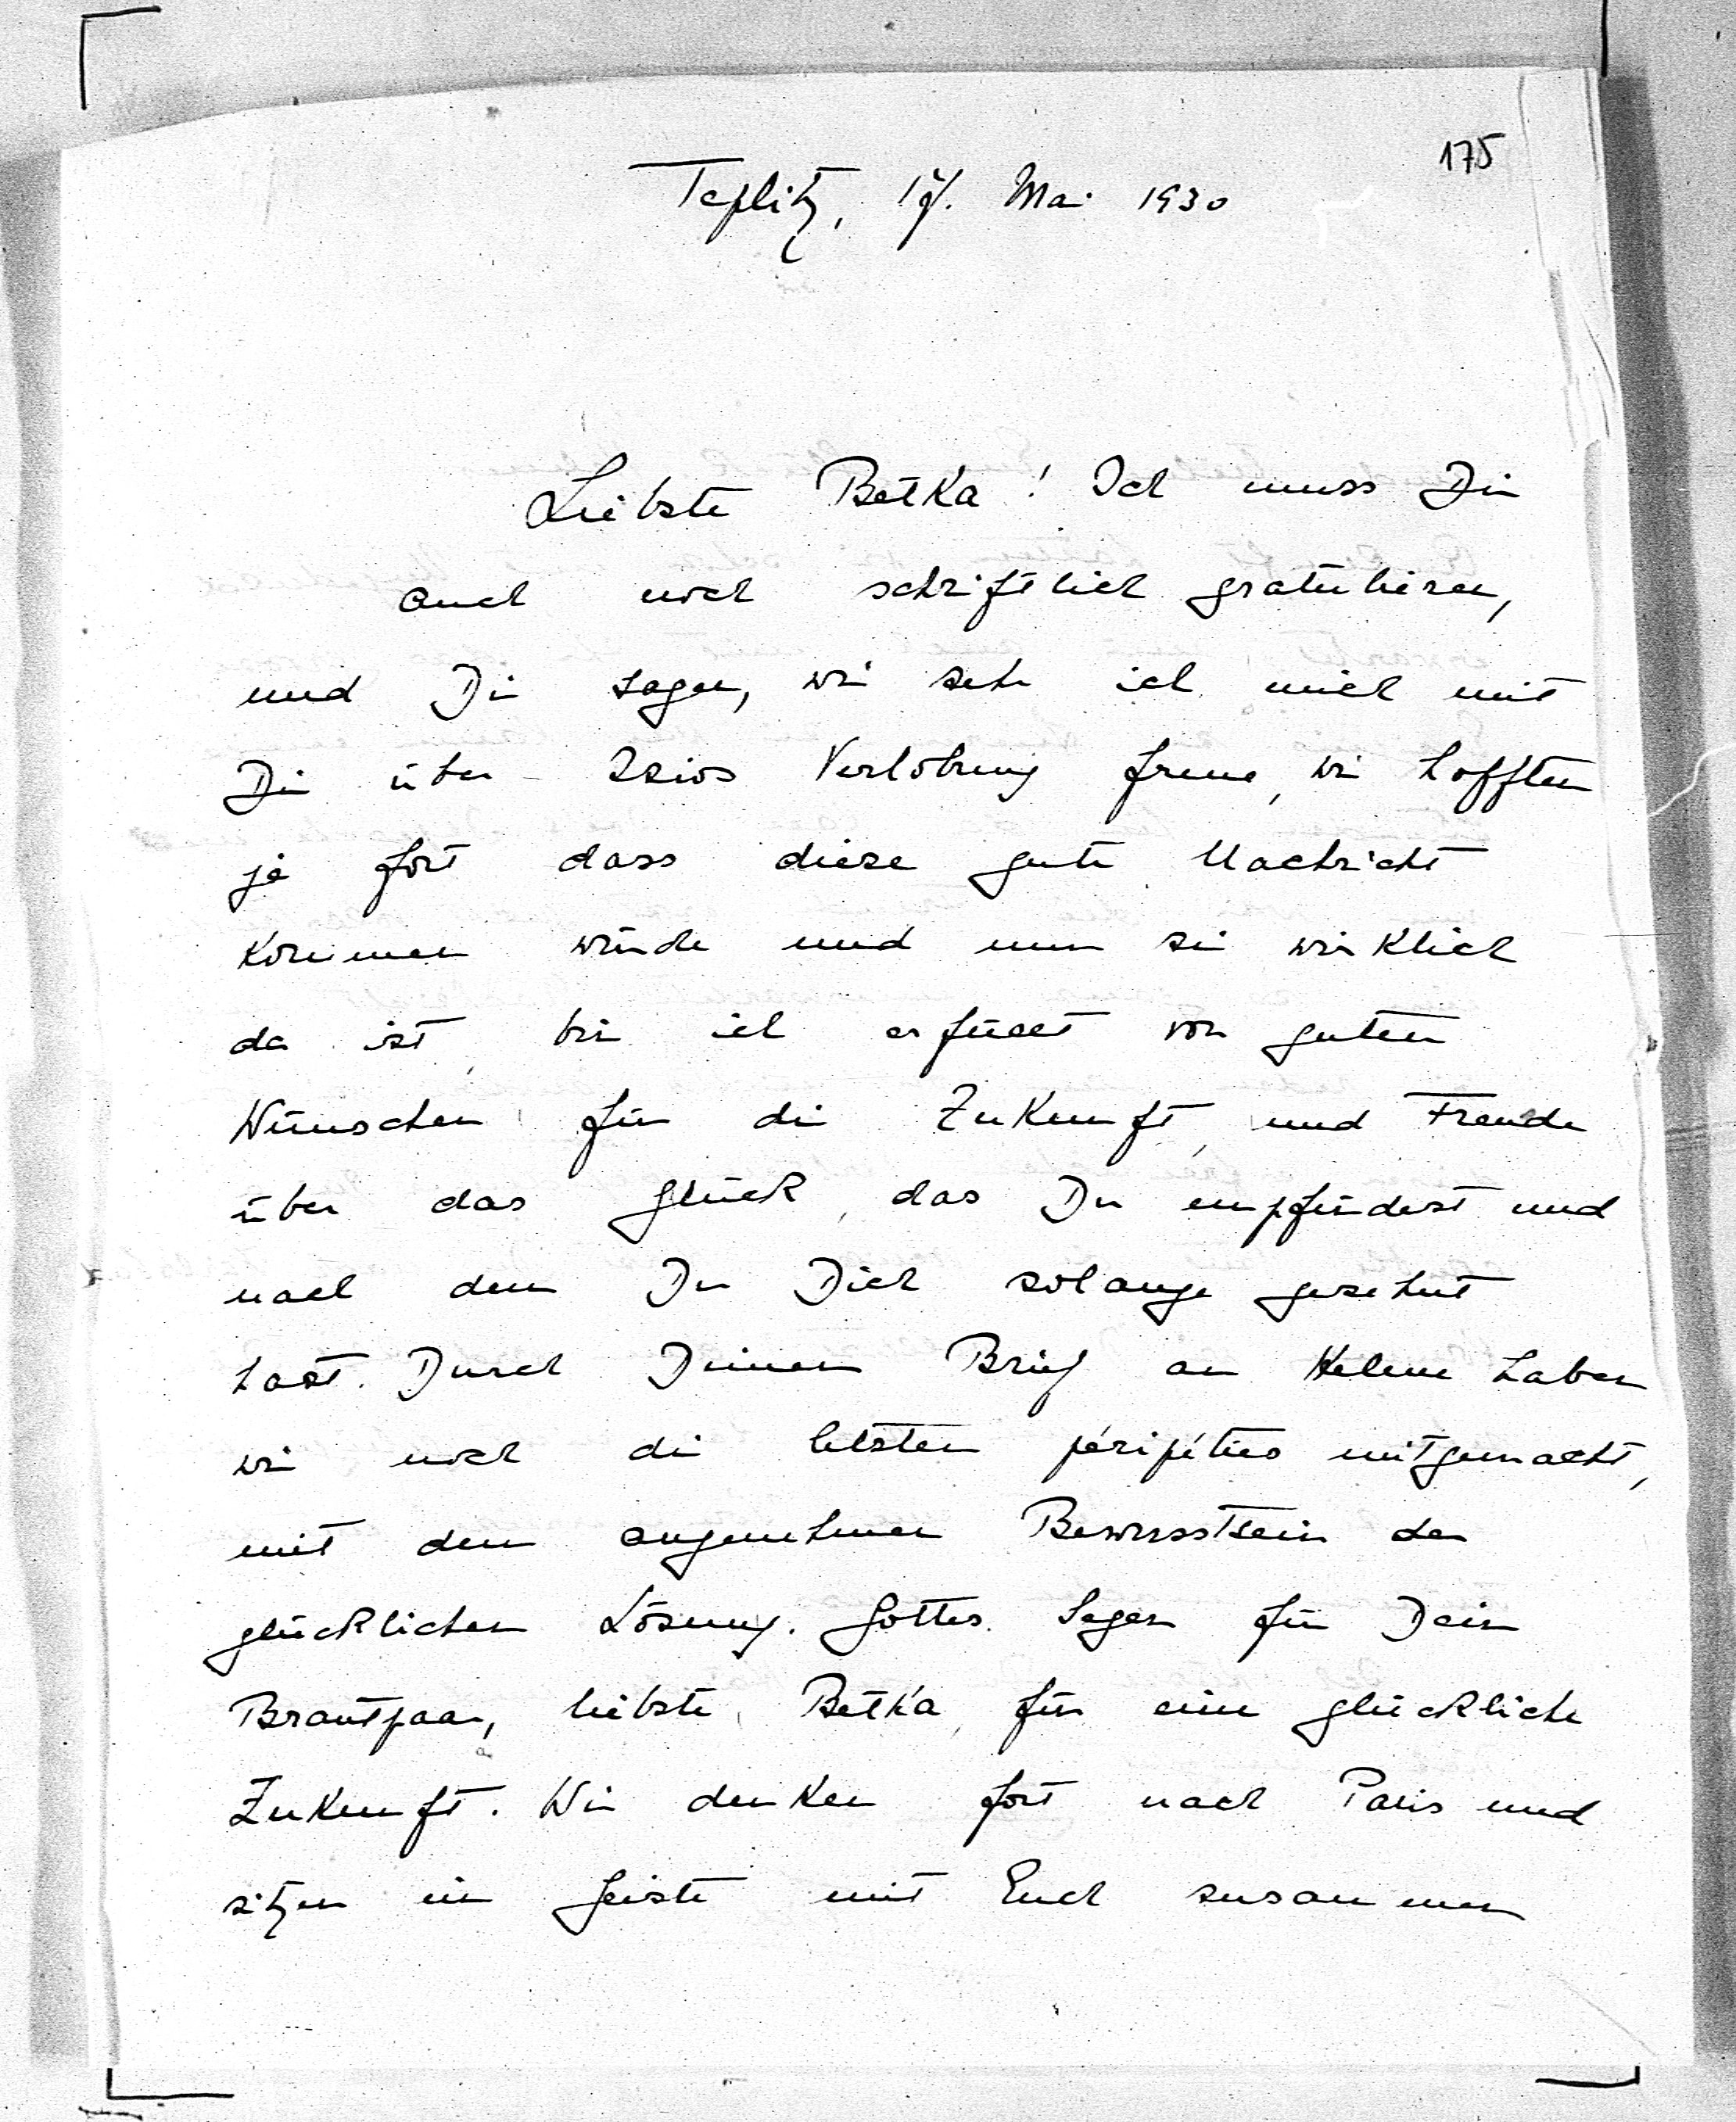 175
Teplitz, Mai 1930
Liebste Betka! Ich muss Dir
auch noch schriftlich gratulieren,
und Dir sagen, wie sehr ich mich mit
Dir über Verlobung freue, wir hofften
ja fort dass diese gute Nachricht
kommen würde und nun sie wirklich
da ist, bin ich erfüllt von guten
Wünschen für die Zukunft, und Freude
über das Glück, das Du empfindest und
nach dem Du Dich solange gesehnt
hast. Durch Deinen Brief an Helene haben
wir noch die letzten péripéties mitgemacht,
mit dem angenehmen Bewusstsein der
glücklichen Lösung. Gottes Segen für Dein
Brautpaar, liebste Betka, für eine glückliche
Zukunft. Wir denken fort nach Paris und
sitzen im Geiste mit Euch zusammen